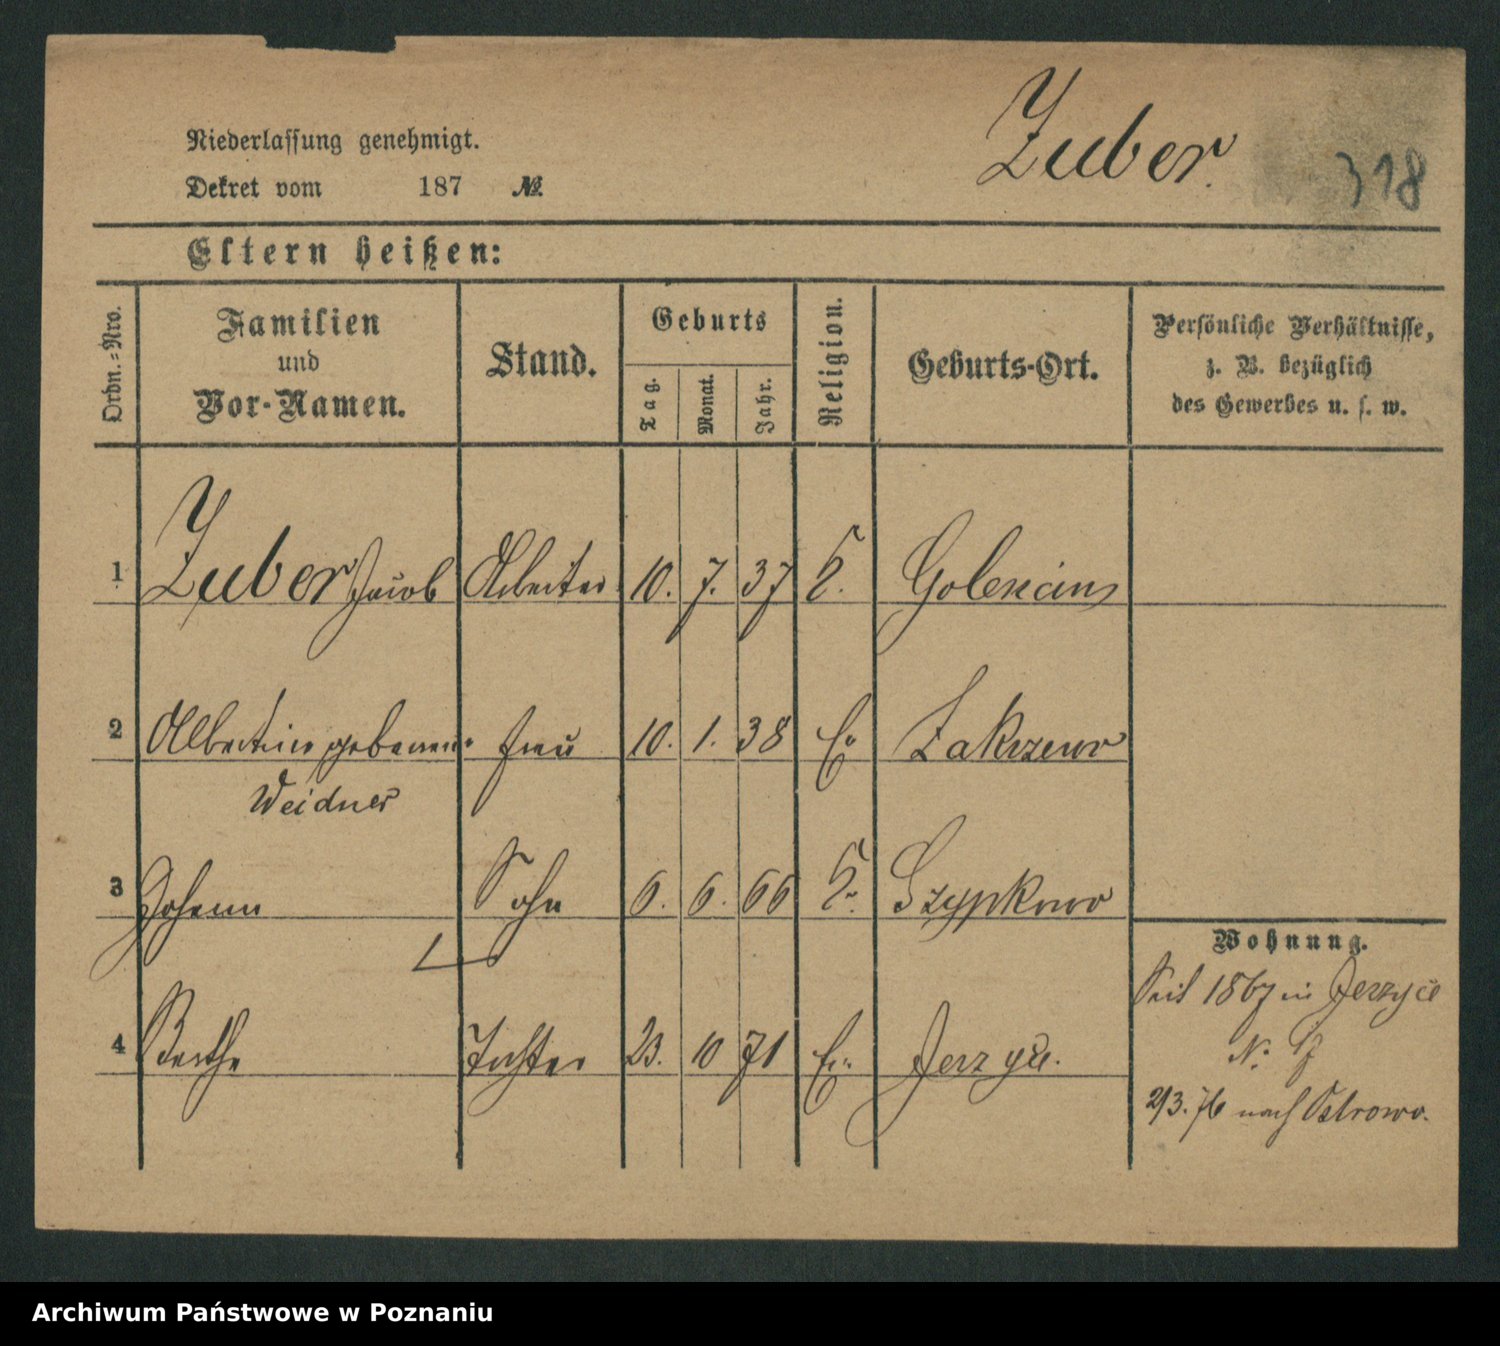 Zuber.
318
Niederlassung genehmigt.
Dekret vom 187 №
Eltern heißen:
Ordn.-Nro.
Familien
und
Vor-Namen.
Stand.
Geburts
Tag.
Monat.
Jahr.
Religion.
Geburts-Ort.
Persönliche Verhältnisse,
z. B. bezüglich
des Gewerbes u. s. w.
1 Zuber Jacob Arbeiter 10. 7. 37 Golencin
2 Albertine geborene Frau 10. 1. 38 Ev Zakrzewo
Weidner
3 Johann Sohn 6. 6. 66 Szypkowo
Wohnung.
Seit 1867 in Jerzyce
N.
4 Bertha Tochter 23. 10 71 Ev. Jerzyce.
2/3. 76 nach Ostrowo.
Archiwum Państwowe w Poznaniu